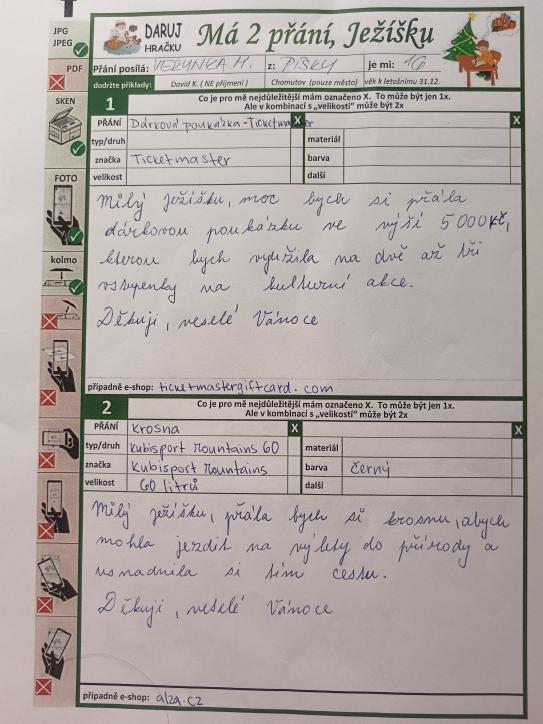 JPG
JPEG
PDF
SKEN
FOTO
kolmo
DARUJ
HRAČKU
Má 2 přání, Ježíšku
Přání posílá: VERUNKA H. z: PÍSKY je mi: 16
dodržte příklady: David K. ( NE příjmení ) Chomutov (pouze město) věk k letošnímu 31.12.
1 Co je pro mě nejdůležitější mám označeno X. To může být jen 1x.
Ale v kombinaci s „velikostí" může být 2x
PŘÁNÍ Dárková poukázka-Ticketmaster X X
typ/druh materiál
značka Ticketmaster barva
velikost další
Milý Ježíšku, moc bych si přála
dárkovou poukázku ve výši 5000kč,
kterou bych využila na dvě až tři
vstupenky na kulturní akce.
Děkuji, veselé Vánoce
případně e-shop: ticketmastergiftcard.com
2 Co je pro mě nejdůležitější mám označeno X. To může být jen 1x.
Ale v kombinaci s „velikostí" může být 2x
PŘÁNÍ Krosna X X
typ/druh Kubisport Mountains 60 materiál
značka Kubisport Mountains barva černý
velikost 60 litrů další
Milý Ježíšku, přála bych si krosnu, abych
mohla jezdit na výlety do přírody a
usnadnila si tím cestu.
Děkuji, veselé Vánoce
případně e-shop: alza.cz